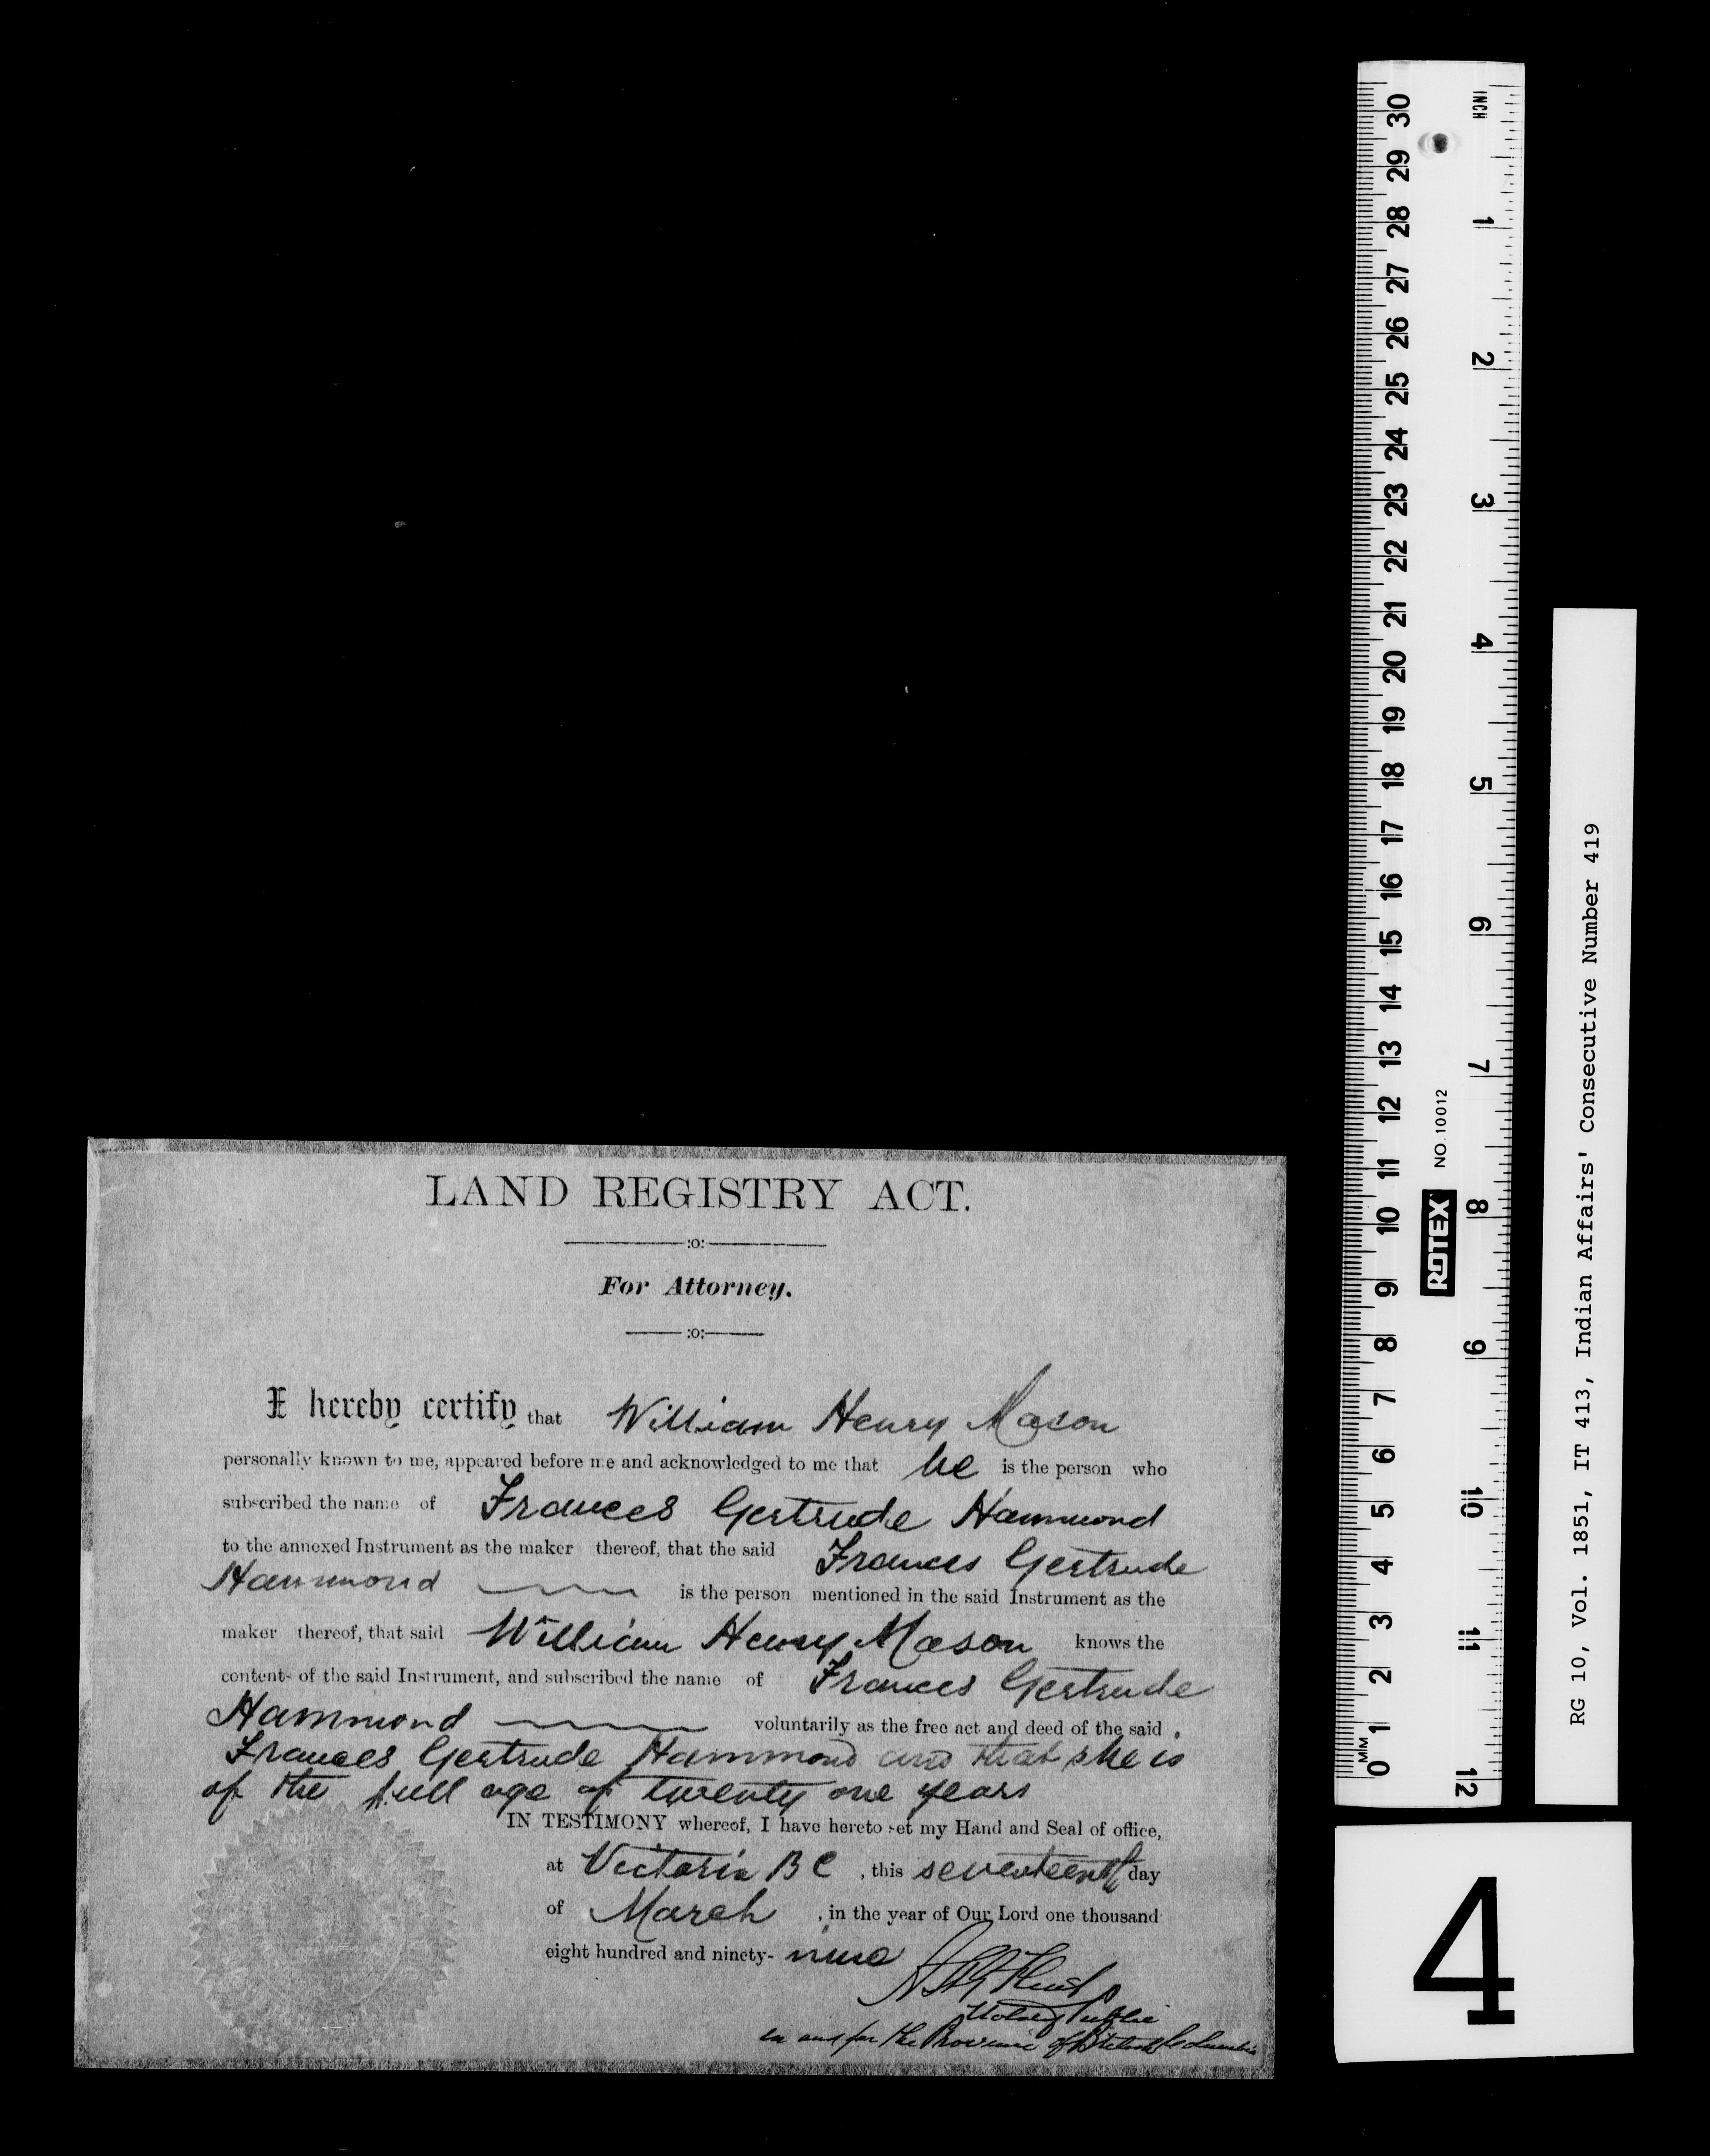 LAND REGISTRY ACT.
:o:
For Attorney.
:o:
I hereby certify that William Henry Mason
personally known to me, appeared before me and acknowledged to me that he is the person who
subscribed the name of Frances Gertrude Hammond
to the annexed Instrument as the maker thereof, that the said Frances Gertrude
Hammond is the person mentioned in the said Instrument as the
maker thereof, that said William Henry Mason knows the
contents of the said Instrument, and subscribed the name of Frances Gertrude
Hammond voluntarily as the free act and deed of the said
Frances Gertrude Hammond and that she is
of the full age of twenty one years
IN TESTIMONY whereof, I have hereto set my Hand and Seal of office,
at Victoria B C, this seventeenth day
of March, in the year of Our Lord one thousand
eight hundred and ninety-nine
Notary Public
in and for the Province of British Columbia
30 29 28 27 26 25 24 23 22 21 20 19 18 17 16 15 14 13 12 11 10 9 8 7 6 5 4 3 2 1 0
MM
INCH 1 2 3 4 5 6 7 8 9 10 11 12
ROTEX NO.10012
RG 10, Vol. 1851, IT 413, Indian Affairs' Consecutive Number 419
4